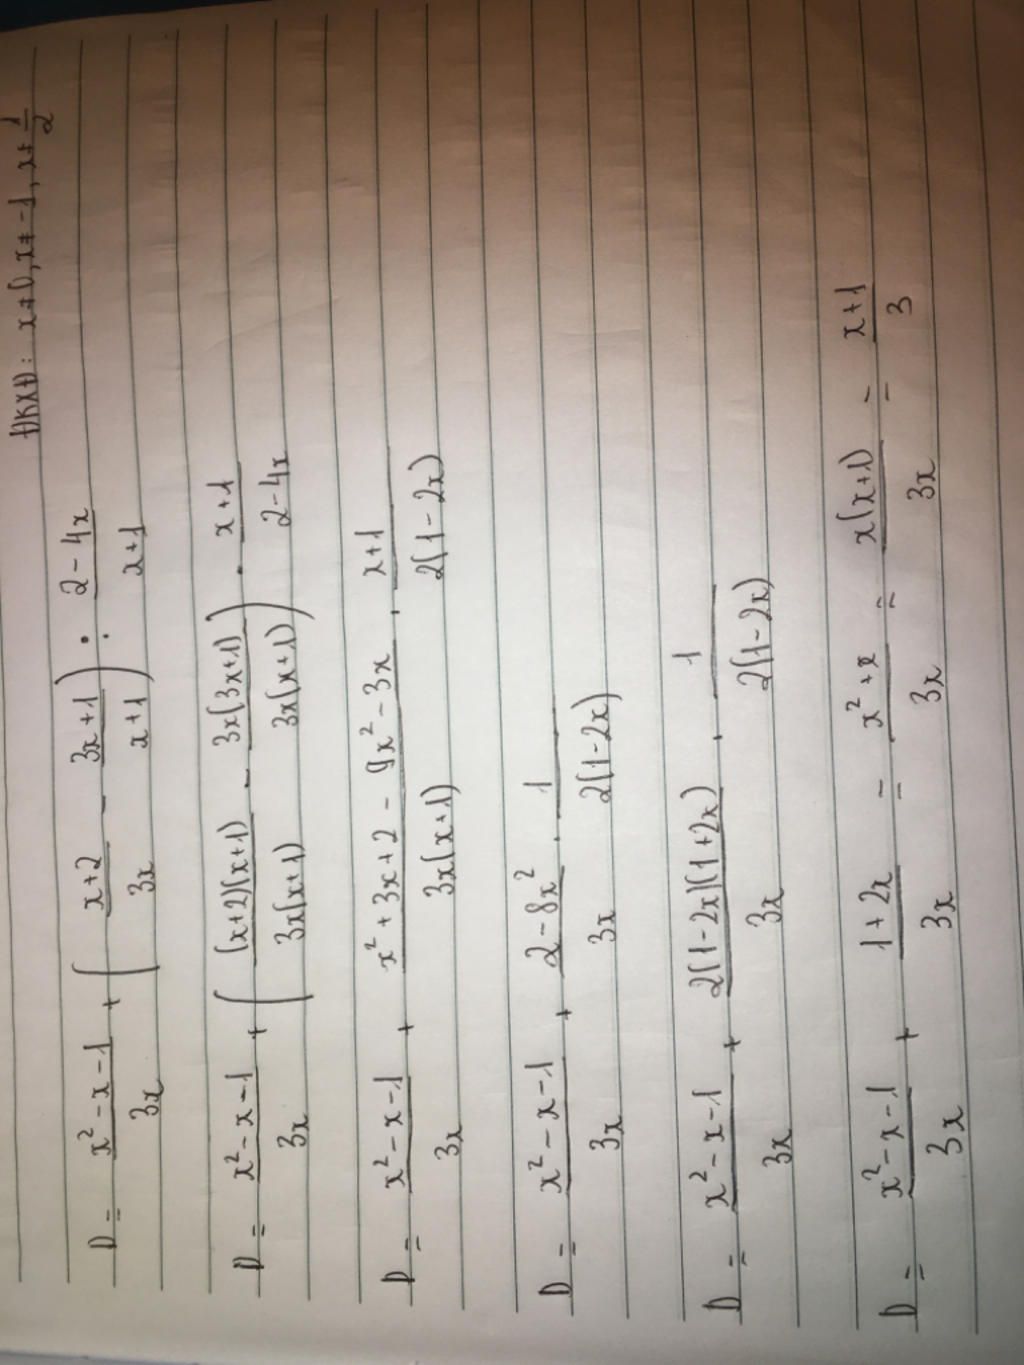 ĐKXĐ: x ≠ 0, x ≠ -1, x ≠ 1/2
D = (x² - x - 1)/(3x) + ((x+2)/(3x) - (3x+1)/(x+1)) : (2 - 4x)/(x+1)
D = (x² - x - 1)/(3x) + ((x+2)(x+1)/(3x(x+1)) - 3x(3x+1)/(3x(x+1))) . (x+1)/(2 - 4x)
D = (x² - x - 1)/(3x) + (x² + 3x + 2 - 9x² - 3x)/(3x(x+1)) . (x+1)/(2(1 - 2x))
D = (x² - x - 1)/(3x) + (2 - 8x²)/(3x) . 1/(2(1 - 2x))
D = (x² - x - 1)/(3x) + 2(1 - 2x)(1 + 2x)/(3x) . 1/(2(1 - 2x))
D = (x² - x - 1)/(3x) + (1 + 2x)/(3x) = (x² + x)/(3x) = x(x+1)/(3x) = (x+1)/3